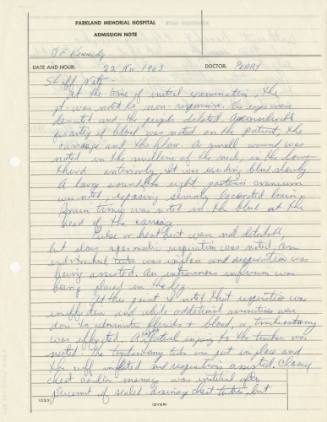 PARKLAND MEMORIAL HOSPITAL
ADMISSION NOTE
J F Kennedy
DATE AND HOUR: 22 Nov 1963 DOCTOR: PERRY
Staff Note
At the time of initial examination, the
pt. was noted to be non-responsive. The eyes were
deviated and the pupils dilated. A considerable
quantity of blood was noted on the patient, the
carriage and the floor. A small wound was
noted in the midline of the neck, in the lower
third anteriorly. It was exuding blood slowly.
A large wound of the right posterior cranium
was noted, exposing severely lacerated brain.
Brain tissue was noted in the blood at the
head of the carriage.
Pulse or heart beat were not detectable
but slow spasmodic respiration was noted. An
endotracheal tube was in place and respiration was
being assisted. An intravenous infusion was
being placed in the leg.
At this point I noted that respiration was
ineffective and while additional venisections were
done to administer fluids & blood, a tracheostomy
was effected. A right lateral injury to the trachea was
noted. The tracheostomy tube was put in place and
the cuff inflated and respiration assisted. Closed
chest cardiac massage was instituted after
placement of sealed drainage chest tubes, but